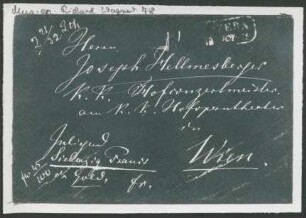 Richard Wagner
LUZERN
Herrn
Joseph Hellmesberger
K. K. Hofconzertmeister
an K. K. Hofoperntheater
in
Wien.
Inliegend
Siebenzig Francs
in Gold. fr.